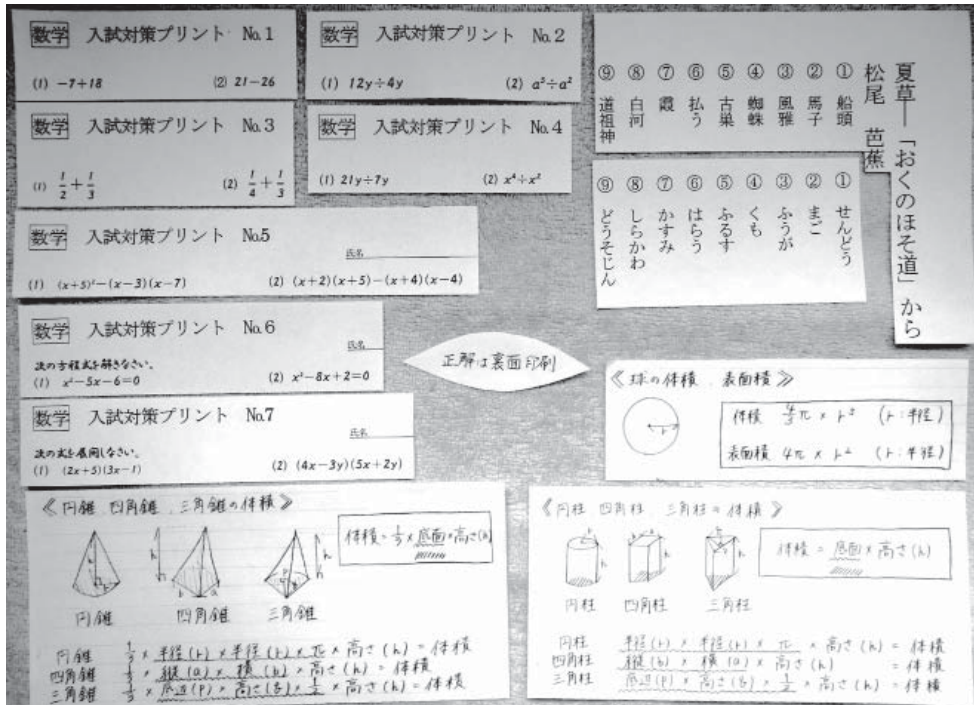 数学 入試対策プリント No.1
(1) −7+18 (2) 21−26
数学 入試対策プリント No.2
(1) 12y÷4y (2) a⁵÷a²
数学 入試対策プリント No.3
(1) 1/2+1/3 (2) 1/4+1/3
数学 入試対策プリント No.4
(1) 21y÷7y (2) x⁴÷x²
数学 入試対策プリント No.5
氏名
(1) (x+5)²−(x−3)(x−7) (2) (x+2)(x+5)−(x+4)(x−4)
数学 入試対策プリント No.6
氏名
次の方程式を解きなさい。
(1) x²−5x−6=0 (2) x²−8x+2=0
数学 入試対策プリント No.7
氏名
次の式を展開しなさい。
(1) (2x+5)(3x−1) (2) (4x−3y)(5x+2y)
夏草―「おくのほそ道」から
松尾 芭蕉
① 船頭
② 馬子
③ 風雅
④ 蜘蛛
⑤ 古巣
⑥ 払う
⑦ 霞
⑧ 白河
⑨ 道祖神
① せんどう
② まご
③ ふうが
④ くも
⑤ ふるす
⑥ はらう
⑦ かすみ
⑧ しらかわ
⑨ どうそじん
正解は裏面印刷
《球の体積、表面積》
r
体積 4/3π × r³ (r:半径)
表面積 4π × r² (r:半径)
《円錐、四角錐、三角錐の体積》
体積=1/3×底面×高さ(h)
円錐 四角錐 三角錐
円錐 1/3 × 半径(r) × 半径(r) × π × 高さ(h) = 体積
四角錐 1/3 × 縦(a) × 横(b) × 高さ(h) = 体積
三角錐 1/3 × 底辺(P) × 高さ(8) × 1/2 × 高さ(h) = 体積
《円柱、四角柱、三角柱の体積》
体積 = 底面 × 高さ(h)
円柱 四角柱 三角柱
円柱 半径(r) × 半径(r) × π × 高さ(h) = 体積
四角柱 縦(b) × 横(a) × 高さ(h) = 体積
三角柱 底辺(P) × 高さ(8) × 1/2 × 高さ(h) = 体積